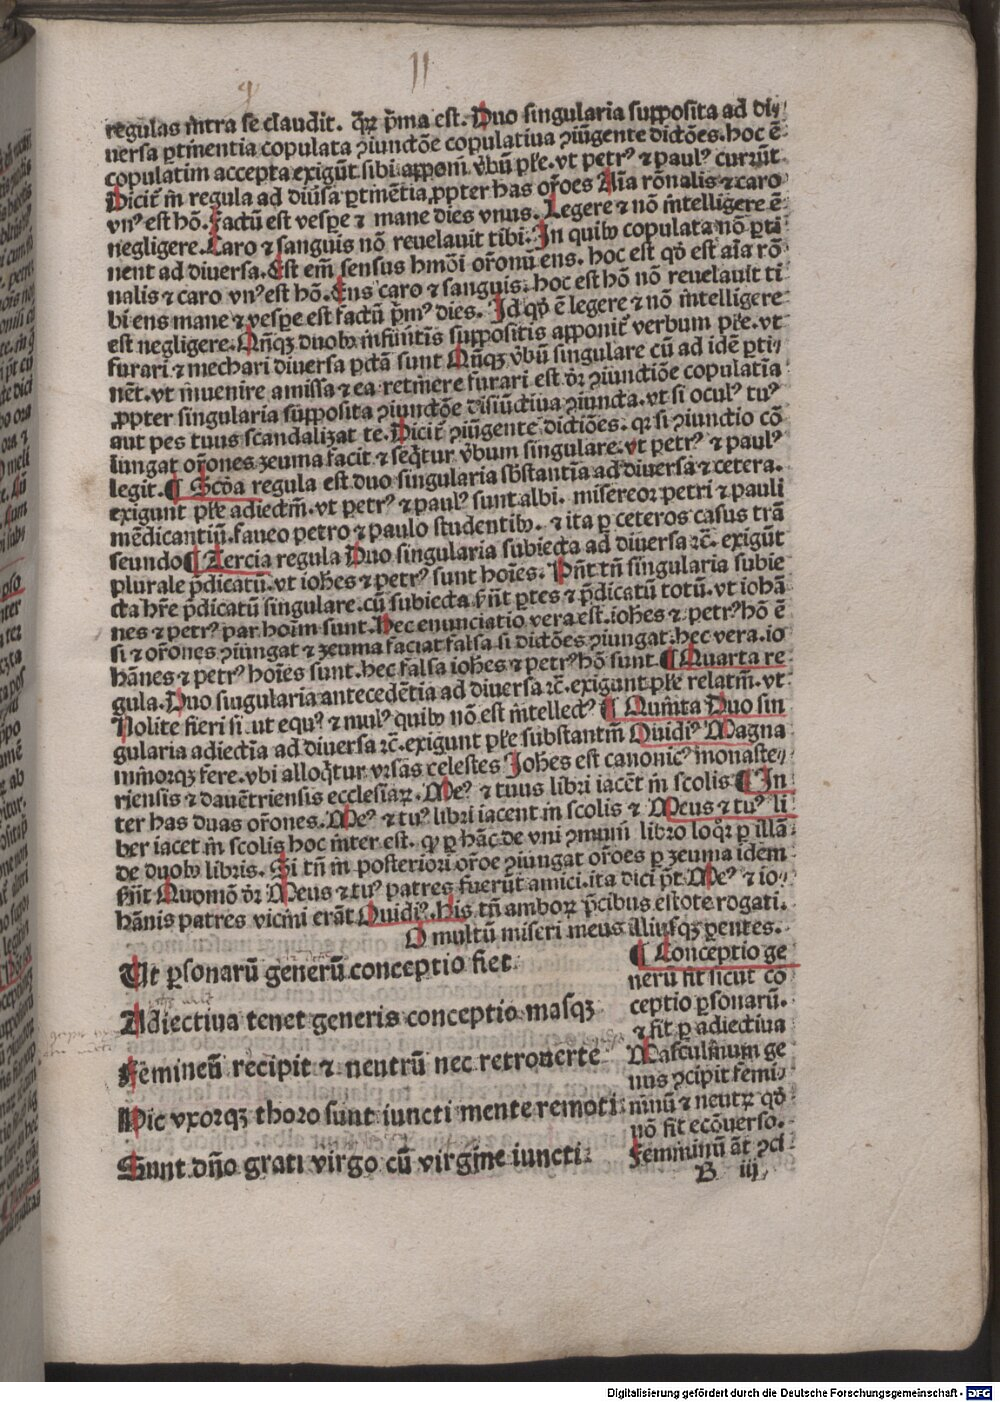 11
regulas intra se claudit. qͣꝝ p̄ma est. Duo singularia supposita ad di⸗
uersa ꝑtinentia copulata ꝯiunctōe copulatiua ꝯiūgente dictōes. hoc ē
copulatim accepta exigūt sibi apponi v̄bū pl̄e. vt petrꝰ ⁊ paulꝰ currūt
Dicit̄ in regula ad diūsa ꝑtinētia ꝓpter has or̄oes Aīa rōnalis ⁊ caro
vnꝰ est hō. Factū est vespe ⁊ mane dies vnus. Legere ⁊ nō intelligere ē
negligere. Caro ⁊ sanguis nō reuelauit tibi. In quibꝰ copulata nō ꝑti
nent ad diuersa. Est em̄ sensus hmōi or̄onū ens. hoc est qḋ est aīa rō
nalis ⁊ caro vnꝰ est hō. Ens caro ⁊ sanguis. hoc est hō nō reuelauit ti
bi ens mane ⁊ vespe est factū p̄mꝰ dies. Id qḋ ē legere ⁊ nō intelligere
est negligere. Qn̄qꝫ duobꝰ infinitis suppositis apponit̄ verbum pl̄e. vt
furari ⁊ mechari diuersa pctā sunt Qn̄qꝫ v̄bū singulare cū ad idē ꝑti⸗
nēt. vt inuenire amissa ⁊ ea retinere furari est dr̄ ꝯiunctiōe copulatia
ꝓpter singularia supposita ꝯiunctōe disiūctiua ꝯiuncta. vt si oculꝰ tuꝰ
aut pes tuus scandalizat te. Dicit̄ ꝯiūgente dictiōes. qꝛ si ꝯiunctio cō
iungat or̄ones zeuma facit ⁊ seqͥtur v̄bum singulare. vt petrꝰ ⁊ paulꝰ
legit. ¶ Scḋa regula est duo singularia sb̄stantia ad diuersa ⁊ cetera.
exigunt pl̄e adiectiū. vt petrꝰ ⁊ paulꝰ sunt albi. misereor petri ⁊ pauli
mēdicantiū. faueo petro ⁊ paulo studentibꝰ. ⁊ ita ꝑ ceteros casus trā
seundo ¶ Tercia regula Duo singularia subiecta ad diuersa ⁊c̄. exigūt
plurale p̄dicatū. vt ioh̄es ⁊ petrꝰ sunt hoīes. Pn̄t tn̄ singularia subie
cta hr̄e p̄dicatū singulare. cū subiecta sn̄t ꝑtes ⁊ p̄dicatū totū. vt iohā
nes ⁊ petrꝰ par hoīm sunt. Hec enunciatio vera est. ioh̄es ⁊ petrꝰ hō ē
si ⁊ or̄ones ꝯiungat ⁊ zeuma faciat falsa si dictōes ꝯiungat. hec vera. io
hānes ⁊ petrꝰ hoīes sunt. hec falsa ioh̄es ⁊ petrꝰ hō sunt. ¶ Quarta re
gula. Duo singularia antecedētia ad diuersa ⁊c̄. exigunt pl̄e relatiū. vt
Nolite fieri sicut equꝰ ⁊ mulꝰ quibꝰ nō est intellectꝰ ¶ Quinta Duo sin
gularia adiectia ad diuersa ⁊c̄. exigunt pl̄e substantiū Ouidiꝰ Magna
minorqꝫ fere. vbi alloqͥtur vrsas celestes Joh̄es est canonicꝰ monaste⸗
riensis ⁊ dauētriensis ecclesiaꝝ. Meꝰ ⁊ tuus libri iacēt in scolis ¶ In
ter has duas or̄ones. Meꝰ ⁊ tuꝰ libri iacent in scolis ⁊ Meus ⁊ tuꝰ li
ber iacet in scolis hoc inter est. qꝙ ꝑ hāc de vni ꝯmuni libro loqͥr ꝑ illā
de duobꝰ libris. Si tn̄ in posteriori or̄oe ꝯiungat or̄oes ꝑ zeuma idem
sn̄t Quomō dr̄ Meus ⁊ tuꝰ patres fuerūt amici. ita dici pt̄. Meꝰ ⁊ io⸗
hānis patres vicini erāt Ouidiꝰ. His tn̄ amboꝝ p̄cibus estote rogati.
O multū miseri meus illiusqꝫ ꝑentes.
Ut ꝑsonarū generū conceptio fiet.
Adiectiua tenet generis conceptio masqꝫ
Femineū recipit ⁊ neutrū nec retrouerte
Dic vxorqꝫ thoro sunt iuncti mente remoti
Sunt dn̄o grati virgo cū virgine iuncti.
¶ Conceptio ge
nerū fit sicut cō
ceptio ꝑsonarū.
⁊ fit ꝑ adiectiua
Masculinum ge
nus ꝯcipit femi⸗
ninū ⁊ neutꝝ qḋ
nō fit ecōuerso.
Femininū āt ꝯci
B iij
Digitalisierung gefördert durch die Deutsche Forschungsgemeinschaft - DFG